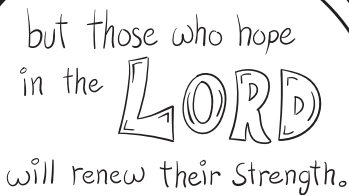 but those who hope
in the LORD
will renew their strength.